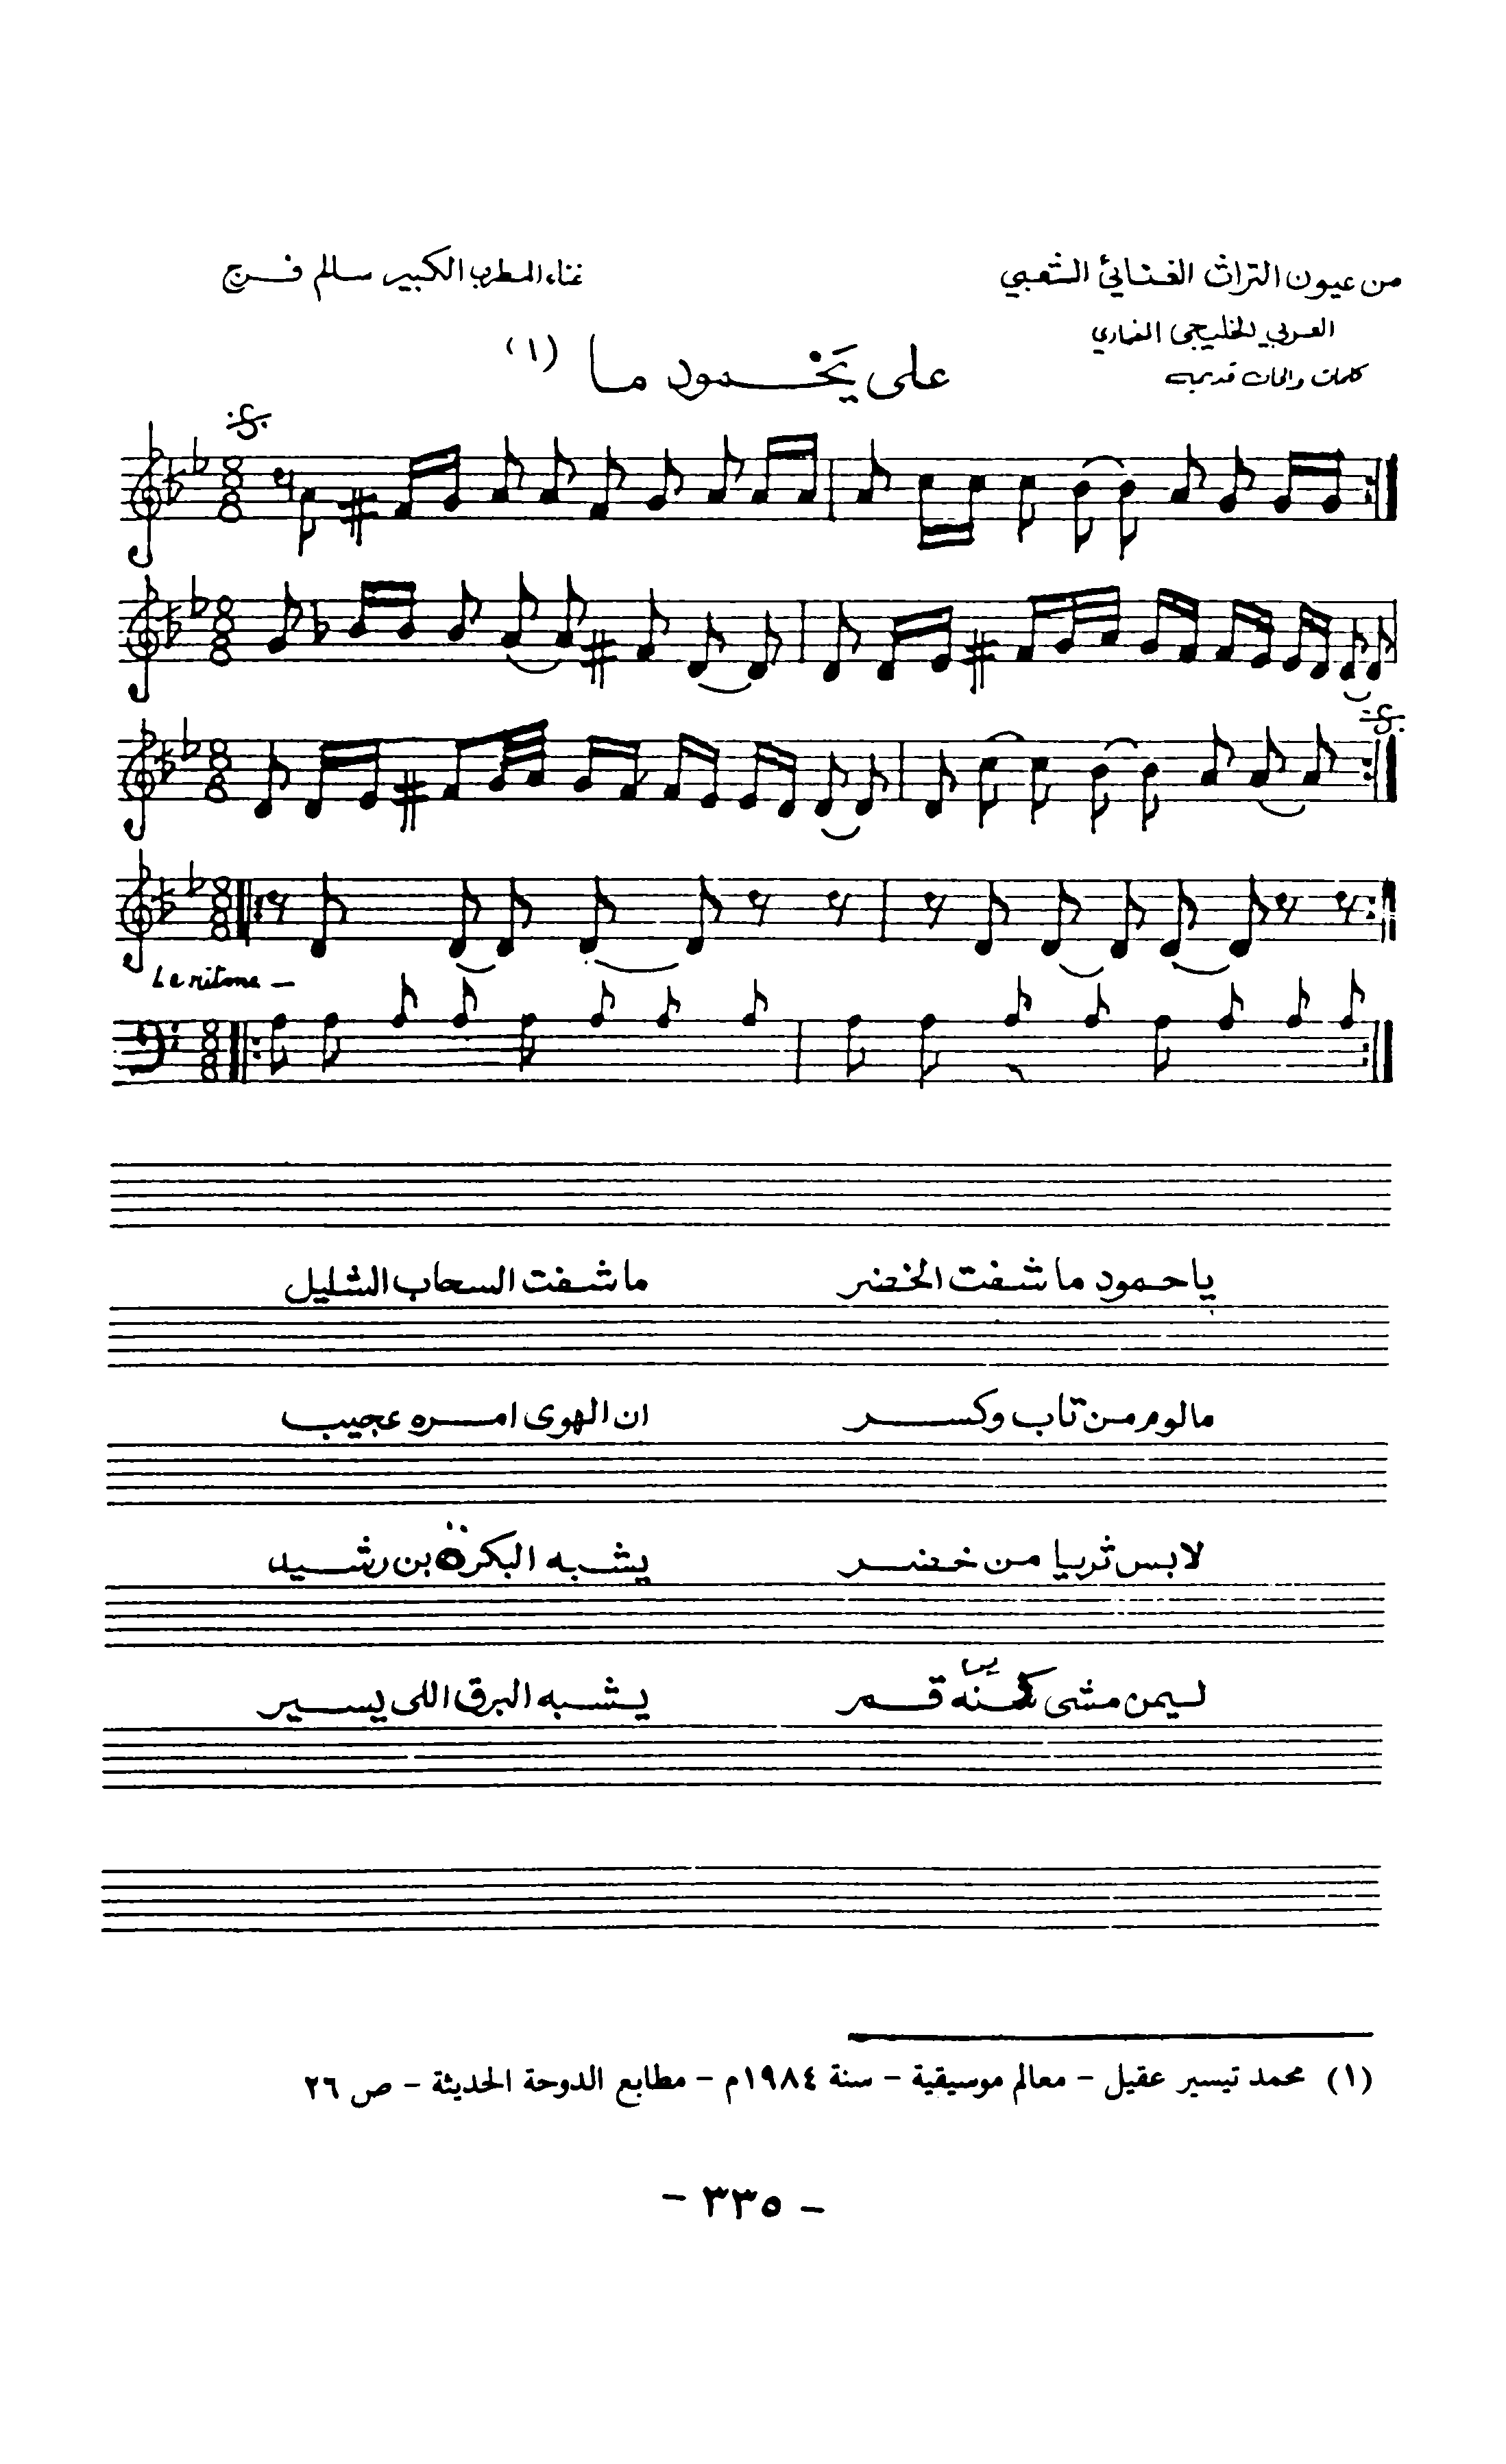 من عيون التراث الغنائي الشعبي
غناء المطرب الكبير سالم فرج
العربي الخليجي
كلمات والحان قديمه
على يحمود ما (١)
8/8
8/8
8/8
8/8
Le ritme —
8/8
ياحمود ما شفت الخضر ما شفت السحاب الشليل
مالوم من تاب وكسر ان الهوى امره عجيب
لابس ثريا من خضر يشبه البكرة بن رشيد
ليمن مشى كنه قمر يشبه البرق اللى يسير
(١) محمد تيسير عقيل - معالم موسيقية - سنة ١٩٨٤م - مطابع الدوحة الحديثة - ص ٢٦
- ٣٣٥ -